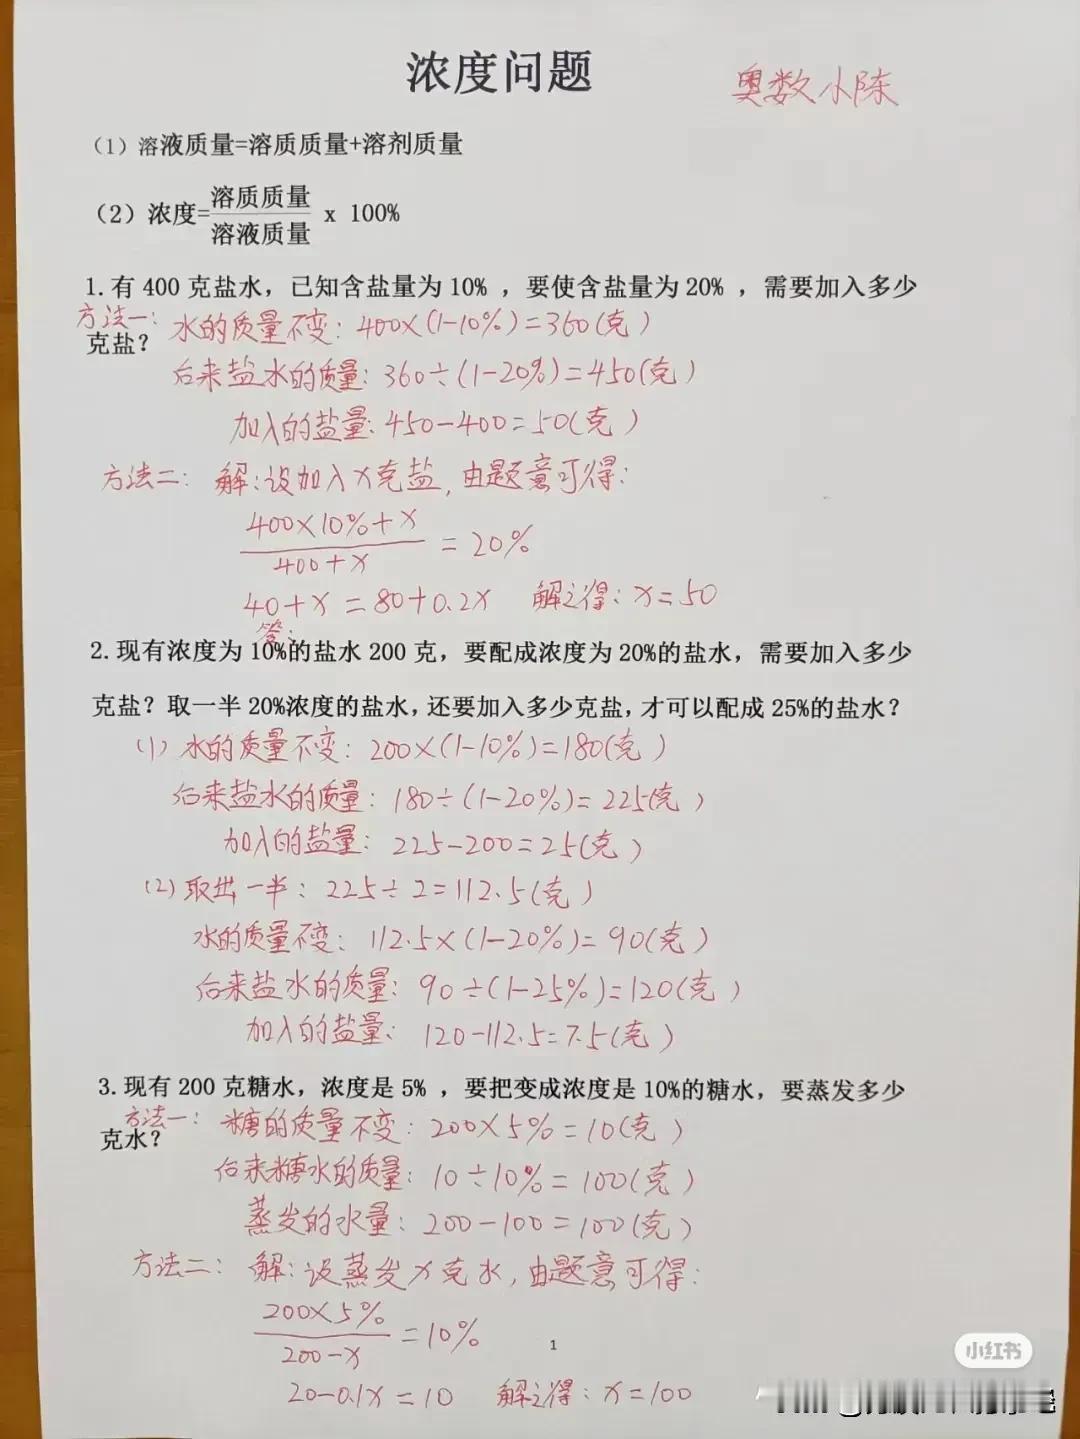 浓度问题
奥数小陈
（1）溶液质量=溶质质量+溶剂质量
（2）浓度=溶质质量/溶液质量 x 100%
1.有400克盐水，已知含盐量为10%，要使含盐量为20%，需要加入多少
克盐？
方法一：水的质量不变：400×(1-10%)=360(克)
后来盐水的质量：360÷(1-20%)=450(克)
加入的盐量：450-400=50(克)
方法二：解：设加入x克盐，由题意可得：
400×10%+x
400+x
=20%
40+x=80+0.2x 解之得：x=50
答：
2.现有浓度为10%的盐水200克，要配成浓度为20%的盐水，需要加入多少
克盐？取一半20%浓度的盐水，还要加入多少克盐，才可以配成25%的盐水？
(1) 水的质量不变：200×(1-10%)=180(克)
后来盐水的质量：180÷(1-20%)=225(克)
加入的盐量：225-200=25(克)
(2) 取出一半：225÷2=112.5(克)
水的质量不变：112.5×(1-20%)=90(克)
后来盐水的质量：90÷(1-25%)=120(克)
加入的盐量：120-112.5=7.5(克)
3.现有200克糖水，浓度是5%，要把变成浓度是10%的糖水，要蒸发多少
克水？
方法一：糖的质量不变：200×5%=10(克)
后来糖水的质量：10÷10%=100(克)
蒸发的水量：200-100=100(克)
方法二：解：设蒸发x克水，由题意可得：
200×5%
200-x
=10%
1
20-0.1x=10 解之得：x=100
小红书